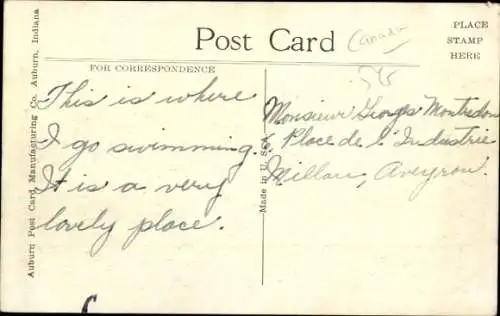 Post Card
Canada
PLACE
STAMP
HERE
FOR CORRESPONDENCE
This is where
I go swimming.
It is a very
lovely place.
Monsieur Georges Montredon
Place de l'Industrie
Millau, Aveyron.
Made in U. S. A.
Auburn Post Card Manufacturing Co. Auburn, Indiana